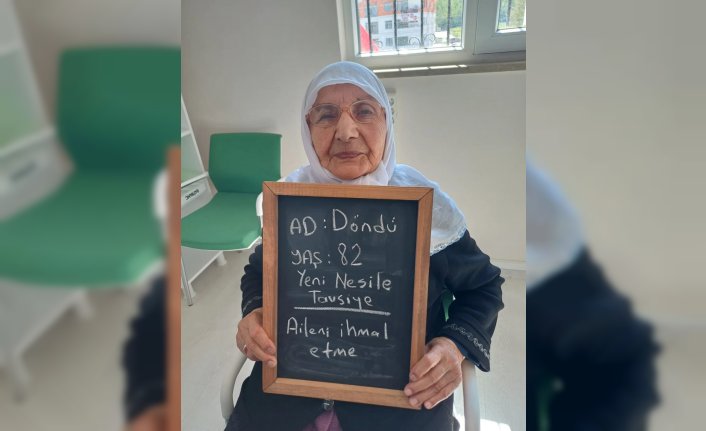 AD : Döndü
YAŞ : 82
Yeni Nesile
Tavsiye
Aileni ihmal
etme